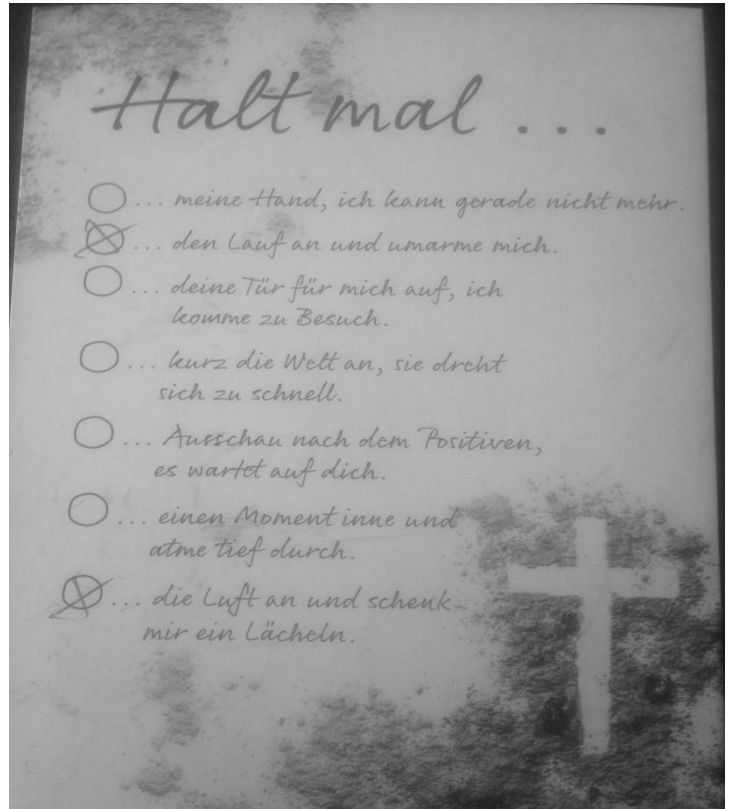 Halt mal ...
... meine Hand, ich kann gerade nicht mehr.
... den Lauf an und umarme mich.
... deine Tür für mich auf, ich
komme zu Besuch.
... kurz die Welt an, sie dreht
sich zu schnell.
... Ausschau nach dem Positiven,
es wartet auf dich.
... einen Moment inne und
atme tief durch.
... die Luft an und schenk
mir ein Lächeln.